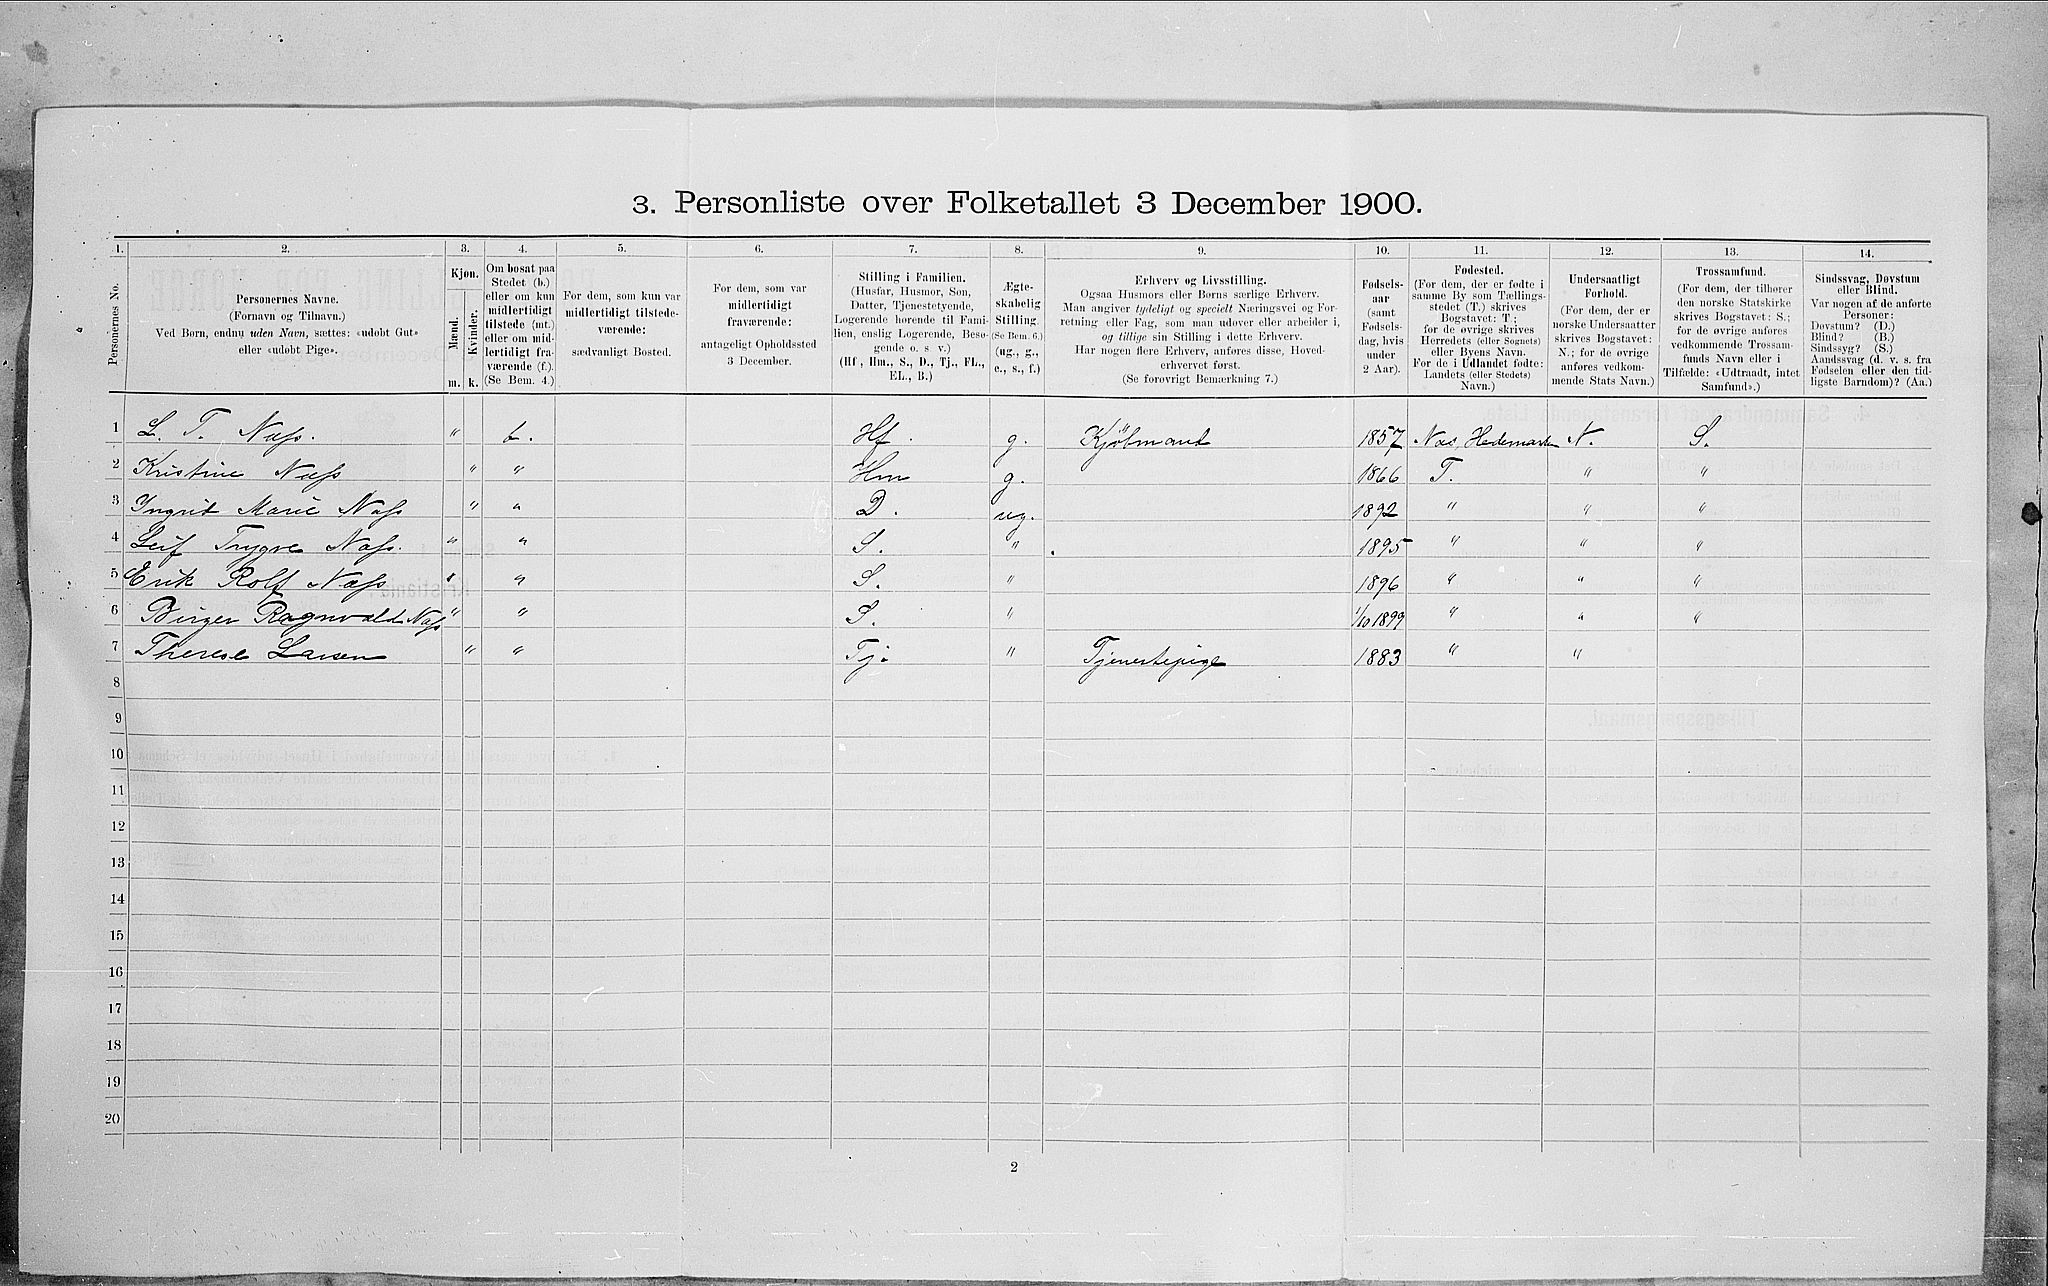 3. Personliste over Folketallet 3 December 1900.
1. 2. 3. 4. 5. 6. 7. 8. 9. 10. 11. 12. 13. 14.
Personernes No.
Personernes Navne.
(Fornavn og Tilnavn.)
Ved Børn, endnu uden Navn, sættes: «udøbt Gut»
eller «udøbt Pige».
Kjøn.
Mænd.
Kvinder.
m. k.
Om bosat paa
Stedet (b.)
eller om kun
midlertidigt
tilstede (mt.)
eller om mid-
lertidigt fra-
værende (f.).
(Se Bem. 4.)
For dem, som kun var
midlertidigt tilstede-
værende:
sædvanligt Bosted.
For dem, som var
midlertidigt
fraværende:
antageligt Opholdssted
3 December.
Stilling i Familien.
(Husfar, Husmor, Søn,
Datter, Tjenestetyende,
Logerende hørende til Fami-
lien, enslig Logerende, Besø-
gende o. s. v.)
(Hf., Hm., S., D., Tj., FL.,
EL., B.)
Ægte-
skabelig
Stilling.
(Se Bem. 6.)
(ug., g.,
e., s., f.)
Erhverv og Livsstilling.
Ogsaa Husmors eller Børns særlige Erhverv.
Man angiver tydeligt og specielt Næringsvei og For-
retning eller Fag, som man udøver eller arbeider i,
og tillige sin Stilling i dette Erhverv.
Har nogen flere Erhverv, anføres disse, Hoved-
erhvervet først.
(Se forøvrigt Bemærkning 7.)
Fødsels-
aar
(samt
Fødsels-
dag, hvis
under
2 Aar).
Fødested.
(For dem, der er fødte i
samme By som Tællings-
stedet (T.) skrives
Bogstavet: T.;
for de øvrige skrives
Herredets (eller Sognets)
eller Byens Navn.
For de i Udlandet fødte:
Landets (eller Stedets)
Navn.)
Undersaatligt
Forhold.
(For dem, der er
norske Undersaatter
skrives Bogstavet:
N.; for de øvrige
anføres vedkom-
mende Stats Navn.)
Trossamfund.
(For dem, der tilhører
den norske Statskirke
skrives Bogstavet: S.;
for de øvrige anføres
vedkommende Trossam-
funds Navn eller i
Tilfælde: «Udtraadt, intet
Samfund».)
Sindssvag, Døvstum
eller Blind.
Var nogen af de anførte
Personer:
Døvstum? (D.)
Blind? (B.)
Sindssyg? (S.)
Aandssvag (d. v. s. fra
Fødselen eller den tid-
ligste Barndom)? (Aa.)
1 L. T. Næss. " b. Hf. g. Kjöbmand 1857 Næs, Hedemarken N. S.
2 Kristine Næss " " Hm g. 1866 T. " "
3 Ingrid Marie Næss " " D. ug. 1892 " " "
4 Leif Trygve Næss. " " S. " 1895 " " "
5 Erik Rolf Næss " " S. " 1896 " " "
6 Birger Ragnvald Næss " " S. " 1/10 1899 " " "
7 Therese Larsen " " Tj. " Tjenestepige 1883 " "
8
9
10
11
12
13
14
15
16
17
18
19
20
2